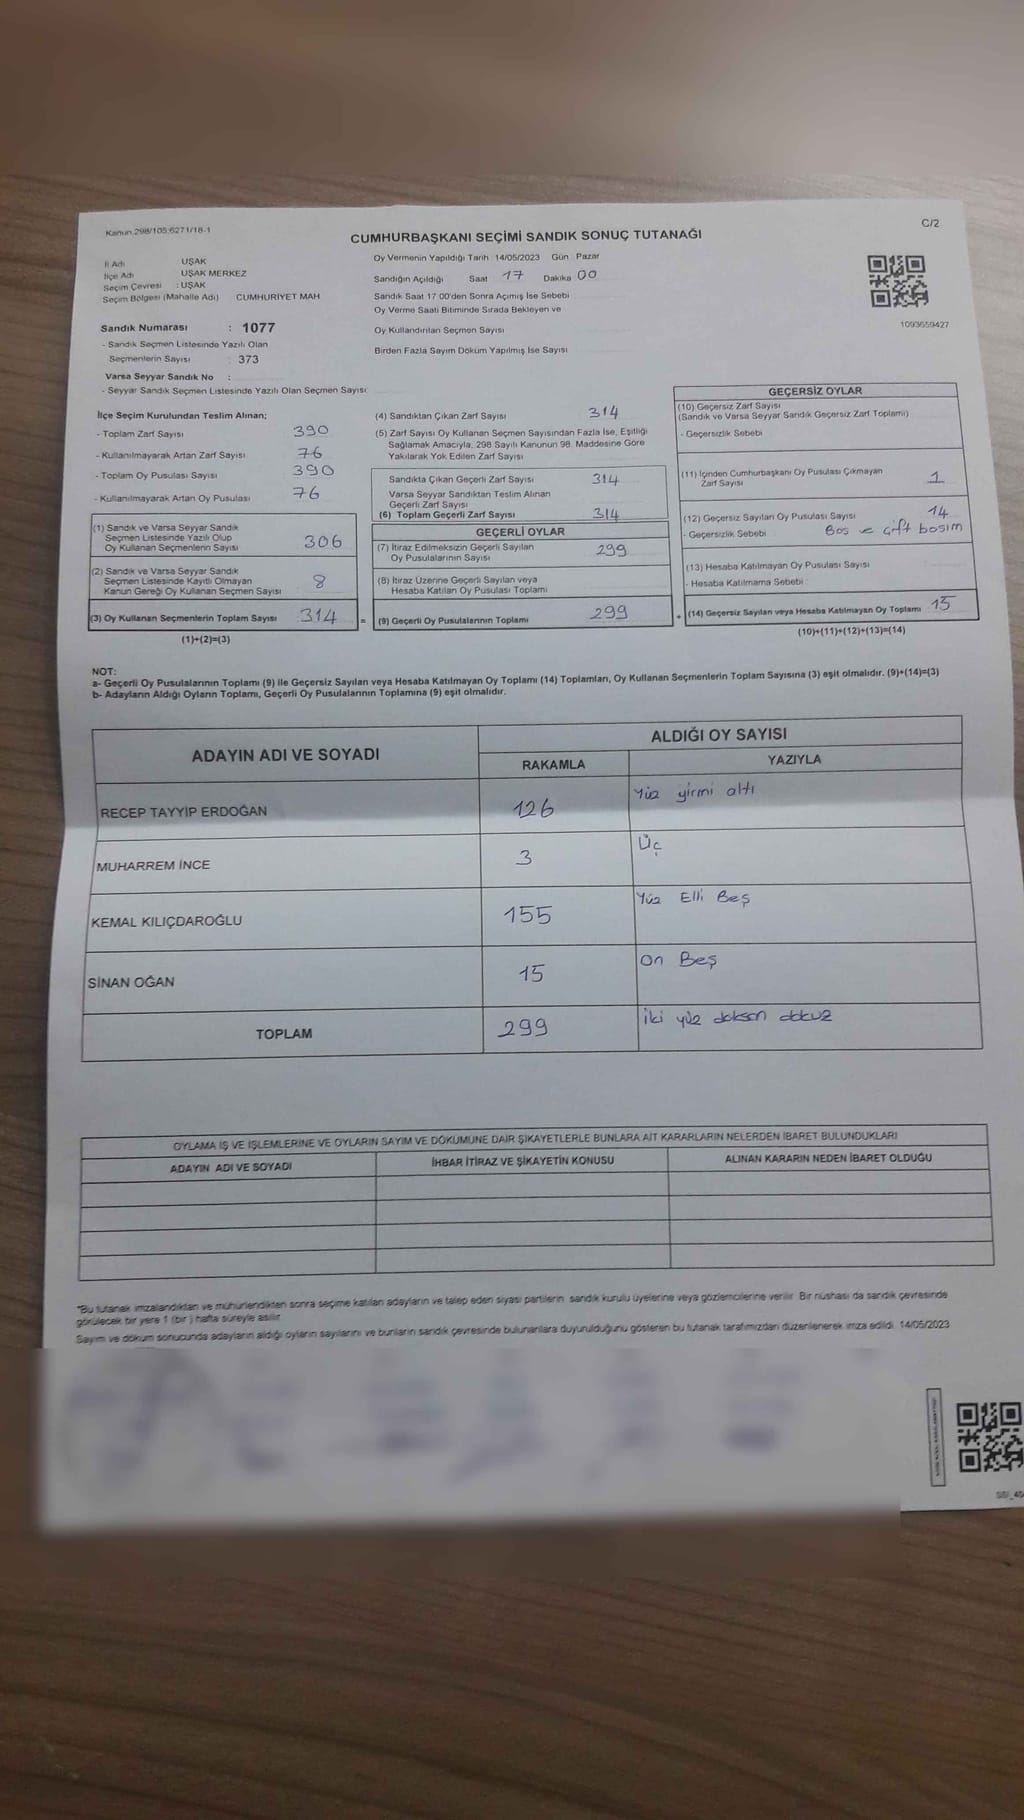 Kanun.298/105;6271/18-1
C/2
CUMHURBAŞKANI SEÇİMİ SANDIK SONUÇ TUTANAĞI
İl Adı UŞAK
İlçe Adı UŞAK MERKEZ
Seçim Çevresi : UŞAK
Seçim Bölgesi (Mahalle Adı) CUMHURİYET MAH
Sandık Numarası : 1077
- Sandık Seçmen Listesinde Yazılı Olan
Seçmenlerin Sayısı : 373
Varsa Seyyar Sandık No :
- Seyyar Sandık Seçmen Listesinde Yazılı Olan Seçmen Sayısı:
Oy Vermenin Yapıldığı Tarih 14/05/2023 Gün Pazar
Sandığın Açıldığı Saat 17 Dakika 00
Sandık Saat 17 00'den Sonra Açımış İse Sebebi
Oy Verme Saati Bitiminde Sırada Bekleyen ve
Oy Kullandırılan Seçmen Sayısı
Birden Fazla Sayım Döküm Yapılmış İse Sayısı
1093659427
İlçe Seçim Kurulundan Teslim Alınan;
- Toplam Zarf Sayısı 390
- Kullanılmayarak Artan Zarf Sayısı 76
- Toplam Oy Pusulası Sayısı 390
- Kullanılmayarak Artan Oy Pusulası 76
(1) Sandık ve Varsa Seyyar Sandık
Seçmen Listesinde Yazılı Olup
Oy Kullanan Seçmenlerin Sayısı 306
(2) Sandık ve Varsa Seyyar Sandık
Seçmen Listesinde Kayıtlı Olmayan
Kanun Gereği Oy Kullanan Seçmen Sayısı 8
(3) Oy Kullanan Seçmenlerin Toplam Sayısı 314 =
(1)+(2)=(3)
(4) Sandıktan Çıkan Zarf Sayısı 314
(5) Zarf Sayısı Oy Kullanan Seçmen Sayısından Fazla İse, Eşitliği
Sağlamak Amacıyla, 298 Sayılı Kanunun 98. Maddesine Göre
Yakılarak Yok Edilen Zarf Sayısı
Sandıkta Çıkan Geçerli Zarf Sayısı 314
Varsa Seyyar Sandıktan Teslim Alınan
Geçerli Zarf Sayısı
(6) Toplam Geçerli Zarf Sayısı 314
GEÇERLİ OYLAR
(7) İtiraz Edilmeksizin Geçerli Sayılan
Oy Pusulalarının Sayısı 299
(8) İtiraz Üzerine Geçerli Sayılan veya
Hesaba Katılan Oy Pusulası Toplamı
(9) Geçerli Oy Pusulalarının Toplamı 299 +
GEÇERSİZ OYLAR
(10) Geçersiz Zarf Sayısı
(Sandık ve Varsa Seyyar Sandık Geçersiz Zarf Toplamı)
- Geçersizlik Sebebi
(11) İçinden Cumhurbaşkanı Oy Pusulası Çıkmayan
Zarf Sayısı 1
(12) Geçersiz Sayılan Oy Pusulası Sayısı 14
- Geçersizlik Sebebi Boş ve çift basım
(13) Hesaba Katılmayan Oy Pusulası Sayısı
- Hesaba Katılmama Sebebi :
(14) Geçersiz Sayılan veya Hesaba Katılmayan Oy Toplamı 15
(10)+(11)+(12)+(13)=(14)
NOT:
a- Geçerli Oy Pusulalarının Toplamı (9) ile Geçersiz Sayılan veya Hesaba Katılmayan Oy Toplamı (14) Toplamları, Oy Kullanan Seçmenlerin Toplam Sayısına (3) eşit olmalıdır. (9)+(14)=(3)
b- Adayların Aldığı Oyların Toplamı, Geçerli Oy Pusulalarının Toplamına (9) eşit olmalıdır.
ADAYIN ADI VE SOYADI
ALDIĞI OY SAYISI
RAKAMLA YAZIYLA
RECEP TAYYİP ERDOĞAN 126 Yüz yirmi altı
MUHARREM İNCE 3 Üç
KEMAL KILIÇDAROĞLU 155 Yüz Elli Beş
SİNAN OĞAN 15 On Beş
TOPLAM 299 İki yüz doksan dokuz
OYLAMA İŞ VE İŞLEMLERİNE VE OYLARIN SAYIM VE DÖKÜMÜNE DAİR ŞİKAYETLERLE BUNLARA AİT KARARLARIN NELERDEN İBARET BULUNDUKLARI
ADAYIN ADI VE SOYADI İHBAR İTİRAZ VE ŞİKAYETİN KONUSU ALINAN KARARIN NEDEN İBARET OLDUĞU
"Bu tutanak imzalandıktan ve mühürlendikten sonra seçime katılan adayların ve talep eden siyasi partilerin sandık kurulu üyelerine veya gözlemcilerine verilir. Bir nüshası da sandık çevresinde
görülecek bir yere 1 (bir) hafta süreyle asılır.
Sayım ve döküm sonucunda adayların aldığı oyların sayılarını ve bunların sandık çevresinde bulunanlara duyurulduğunu gösteren bu tutanak tarafımızdan düzenlenerek imza edildi. 14/05/2023